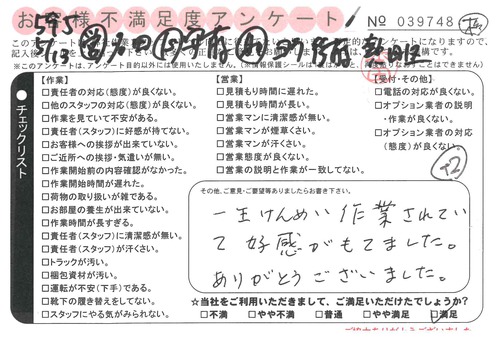 お客様不満足度アンケート
№ 039748
【作業】
□責任者の対応(態度)が良くない。
□他のスタッフの対応(態度)が良くない。
□作業を見ていて不安がある。
□責任者(スタッフ)に好感が持てない。
□お客様への挨拶が出来ていない。
□ご近所への挨拶・気遣いが無い。
□作業開始前の内容確認がなかった。
□作業開始時間が遅れた。
□荷物の取り扱いが雑である。
□お部屋の養生が出来ていない。
□作業時間が長すぎる。
□責任者(スタッフ)に清潔感が無い。
□責任者(スタッフ)が汗くさい。
□トラックが汚い。
□梱包資材が汚い。
□運転が不安(下手)である。
□靴下の履き替えをしてない。
□スタッフにやる気がみられない。
● チェックリスト
【営業】
□見積もり時間に遅れた。
□見積もり時間が長い。
□営業マンに清潔感が無い。
□営業マンが煙草くさい。
□営業マンが汗くさい。
□営業態度が良くない。
□営業の説明と作業が一致してない。
【受付・その他】
□電話の対応が良くない。
□オプション業者の説明
・作業が良くない。
□オプション業者の対応
(態度)が良くない。
×2
その他、ご意見・ご要望等ありましたらお書き下さい。
一生けんめい作業されてい
て好感がもてました。
ありがとうございました。
☆当社をご利用いただきまして、ご満足いただけたでしょうか?
□不満 □やや不満 □普通 □やや満足 □満足